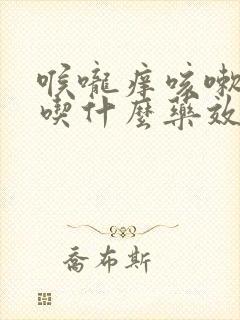 喉嚨痒咳嗽
喫什麼藥效
喬布斯